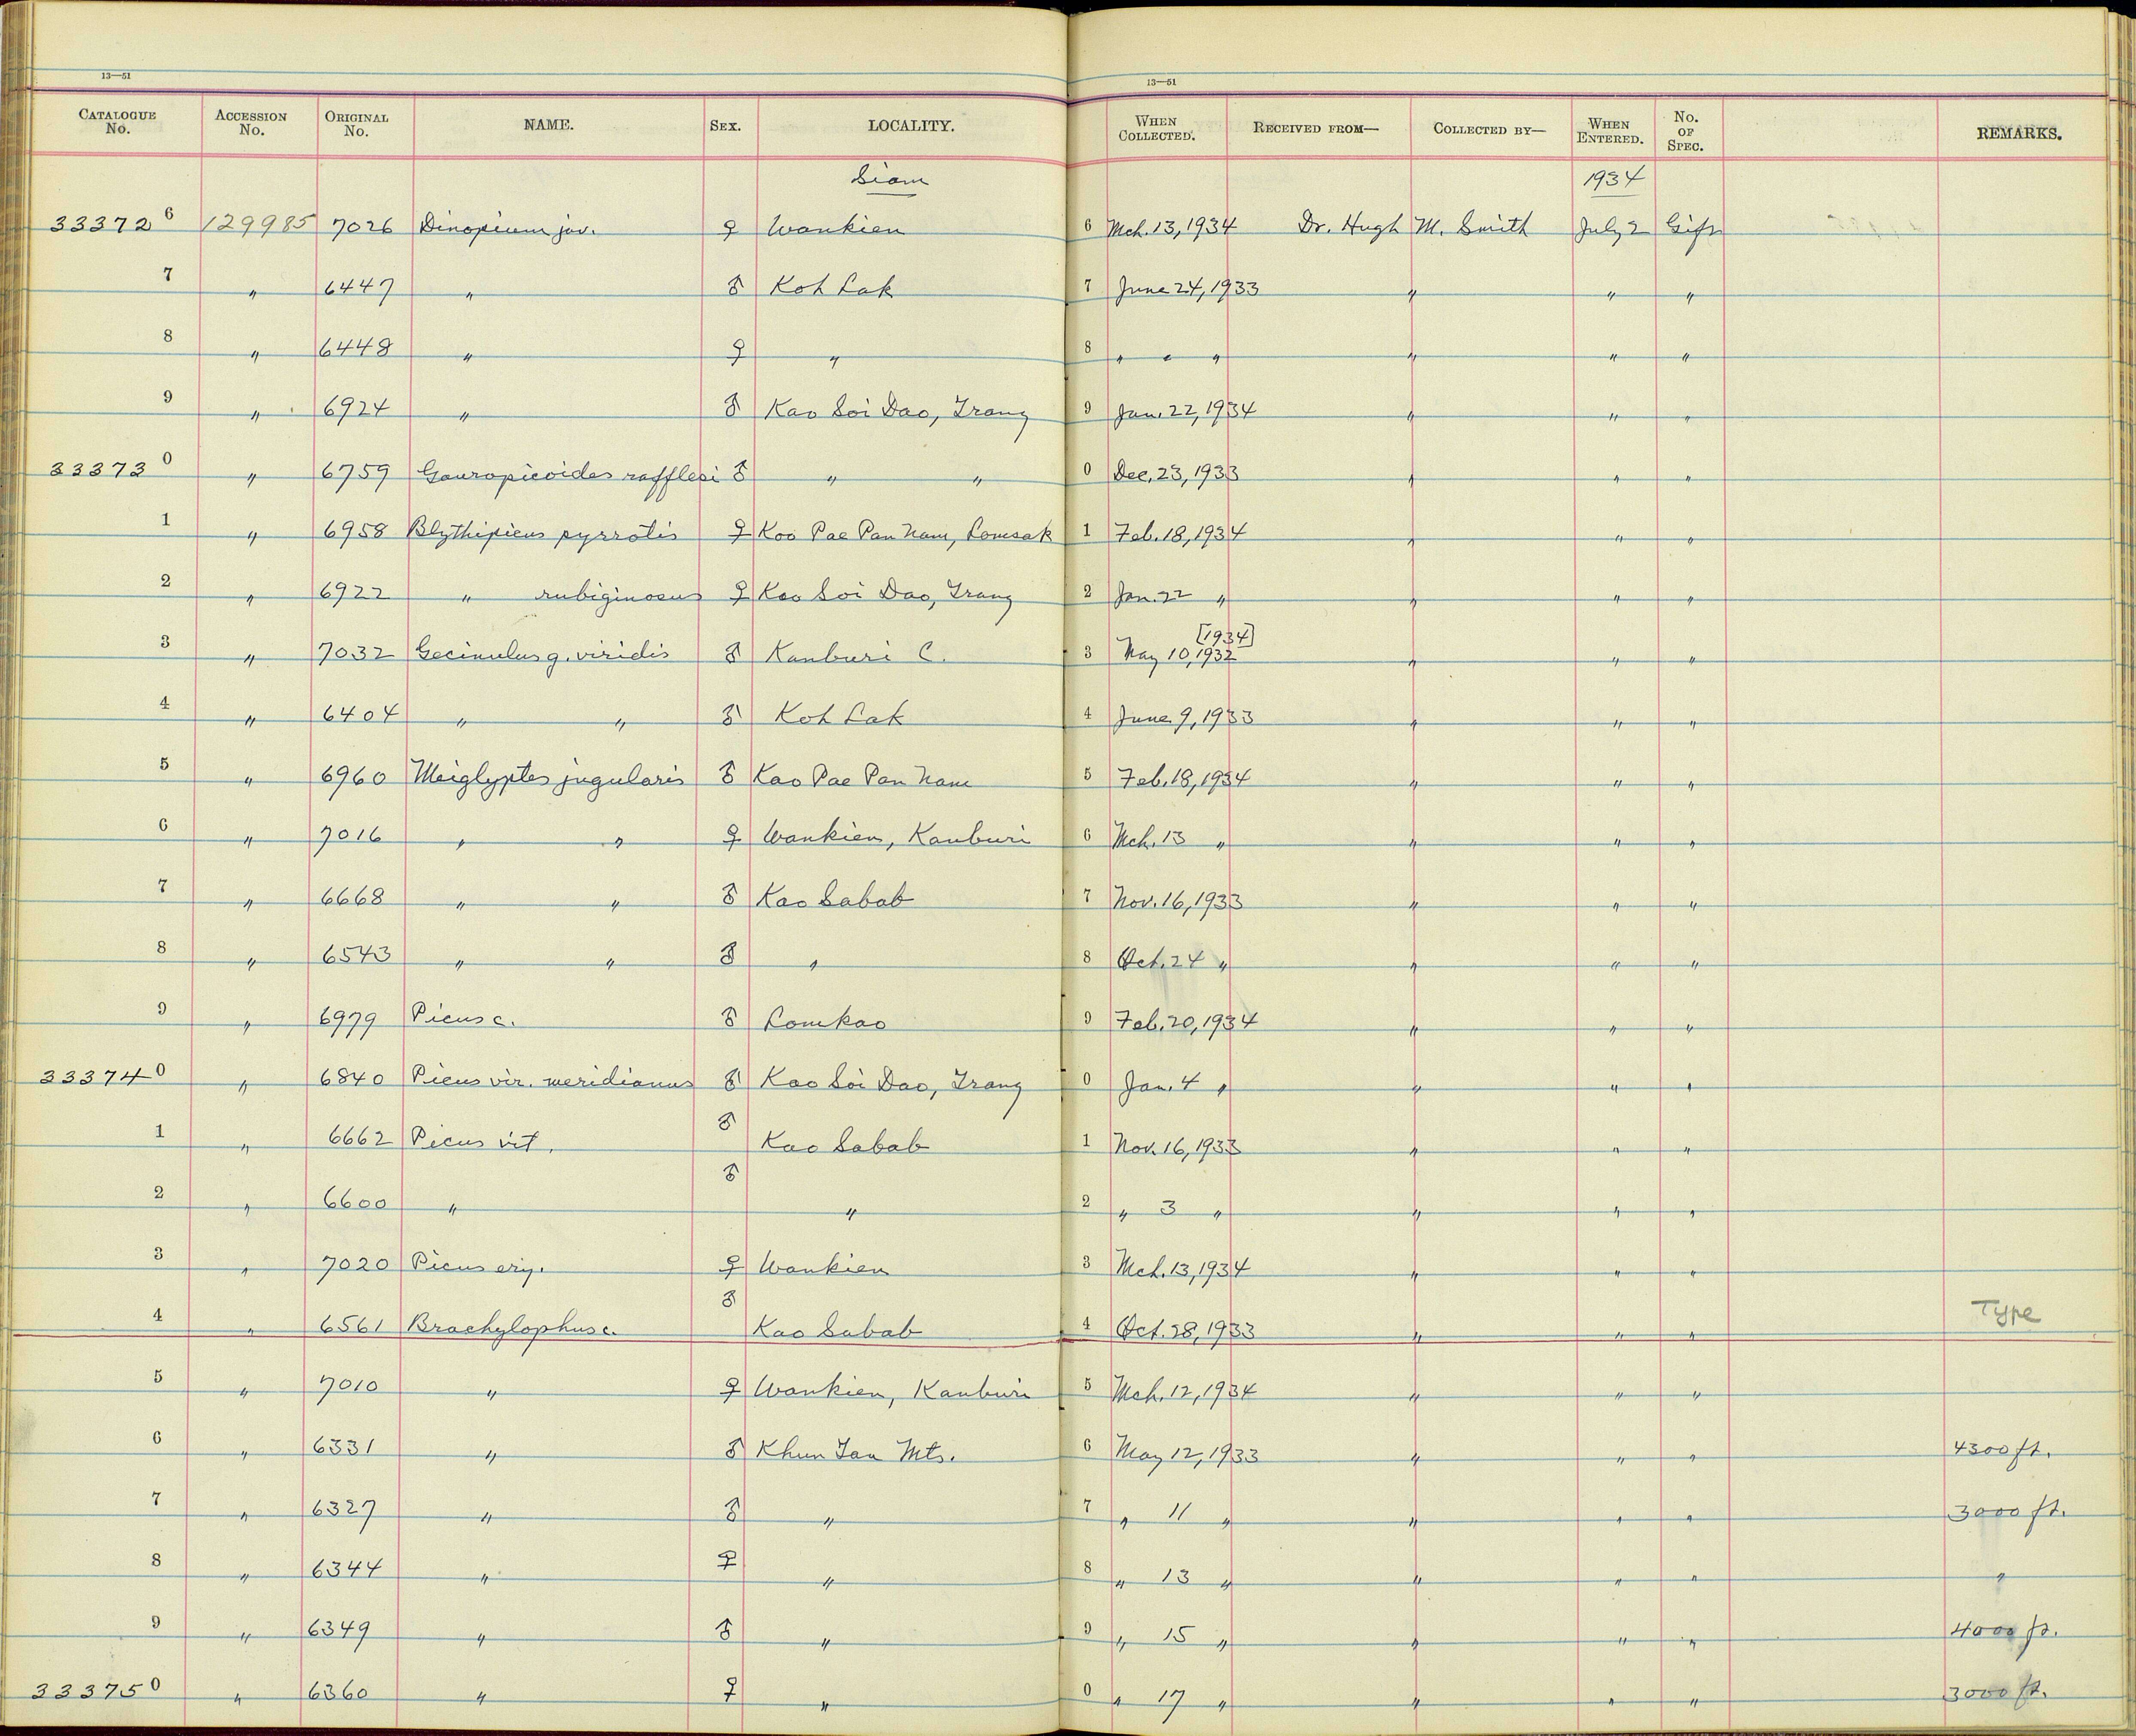 13—51 13—51
CATALOGUE No. ACCESSION No. ORIGINAL No. NAME. SEX. LOCALITY. WHEN COLLECTED. RECEIVED FROM— COLLECTED BY— WHEN ENTERED. No. OF SPEC. REMARKS.
Siam 1934
33372 6 129985 7026 Dinopium jav. ♀ Wankien 6 Mch. 13, 1934 Dr. Hugh M. Smith July 2 Gift
7 " 6447 " ♂ Koh Lak 7 June 24, 1933 " " "
8 " 6448 " ♀ " 8 " " " " " "
9 " 6924 " ♂ Kao Soi Dao, Trang 9 Jan. 22, 1934 " " "
33373 0 " 6759 Gauropicoides rafflesi ♂ " " 0 Dec. 23, 1933 " " "
1 " 6958 Blythipicus pyrrotis ♀ Kao Pae Pan Nam, Lomsak 1 Feb. 18, 1934 " " "
2 " 6922 " rubiginosus ♀ Kao Soi Dao, Trang 2 Jan. 22 " " " "
3 " 7032 Gecinulus g. viridis ♂ Kanburi C. 3 May 10, 1932 [1934] " " "
4 " 6404 " " ♂ Koh Lak 4 June 9, 1933 " " "
5 " 6960 Meiglyptes jugularis ♂ Kao Pae Pan Nam 5 Feb. 18, 1934 " " "
6 " 7016 " " ♀ Wankien, Kanburi 6 Mch. 13 " " " "
7 " 6668 " " ♂ Kao Sabab 7 Nov. 16, 1933 " " "
8 " 6543 " " ♂ " 8 Oct. 24 " " " "
9 " 6979 Picus c. ♂ Lomkao 9 Feb. 20, 1934 " " "
33374 0 " 6840 Picus vir. meridianus ♂ Kao Soi Dao, Trang 0 Jan. 4 " " " "
1 " 6662 Picus vit. ♂ Kao Sabab 1 Nov. 16, 1933 " " "
2 " 6600 " ♂ " 2 " 3 " " " "
3 " 7020 Picus ery. ♀ Wankien 3 Mch. 13, 1934 " " "
4 " 6561 Brachylophus c. ♂ Kao Sabab 4 Oct. 28, 1933 " " " Type
5 " 7010 " ♀ Wankien, Kanburi 5 Mch. 12, 1934 " " "
6 " 6331 " ♂ Khun Tan Mts. 6 May 12, 1933 " " " 4300 ft.
7 " 6327 " ♂ " 7 " 11 " " " " 3000 ft.
8 " 6344 " ♀ " 8 " 13 " " " " "
9 " 6349 " ♂ " 9 " 15 " " " " 4000 ft.
33375 0 " 6360 " ♀ " 0 " 17 " " " " 3000 ft.